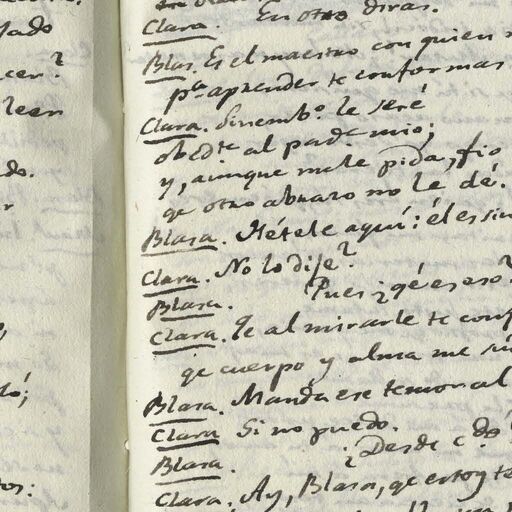 lado
cer?
leer
do.
lo;
tos:
Clara. En otro diras.
Blas. Es el maestro con quien
pa. aprender te conformas
Clara. Sinembo. le seré
obedte. al padre mio;
y, aunque me le pida, fio
qe otro abrazo no le dé.
Blasa. Hétele aquí: él es sin
Clara. No lo dije?
Blasa. Pues ¿qé es eso?
Clara. Qe al mirarle te conf
qe cuerpo y alma me
Blasa. Manda ese temor al
Clara. Si no puedo.
Blasa. ¿Desde
Clara. Ay, Blasa, qe estoy te